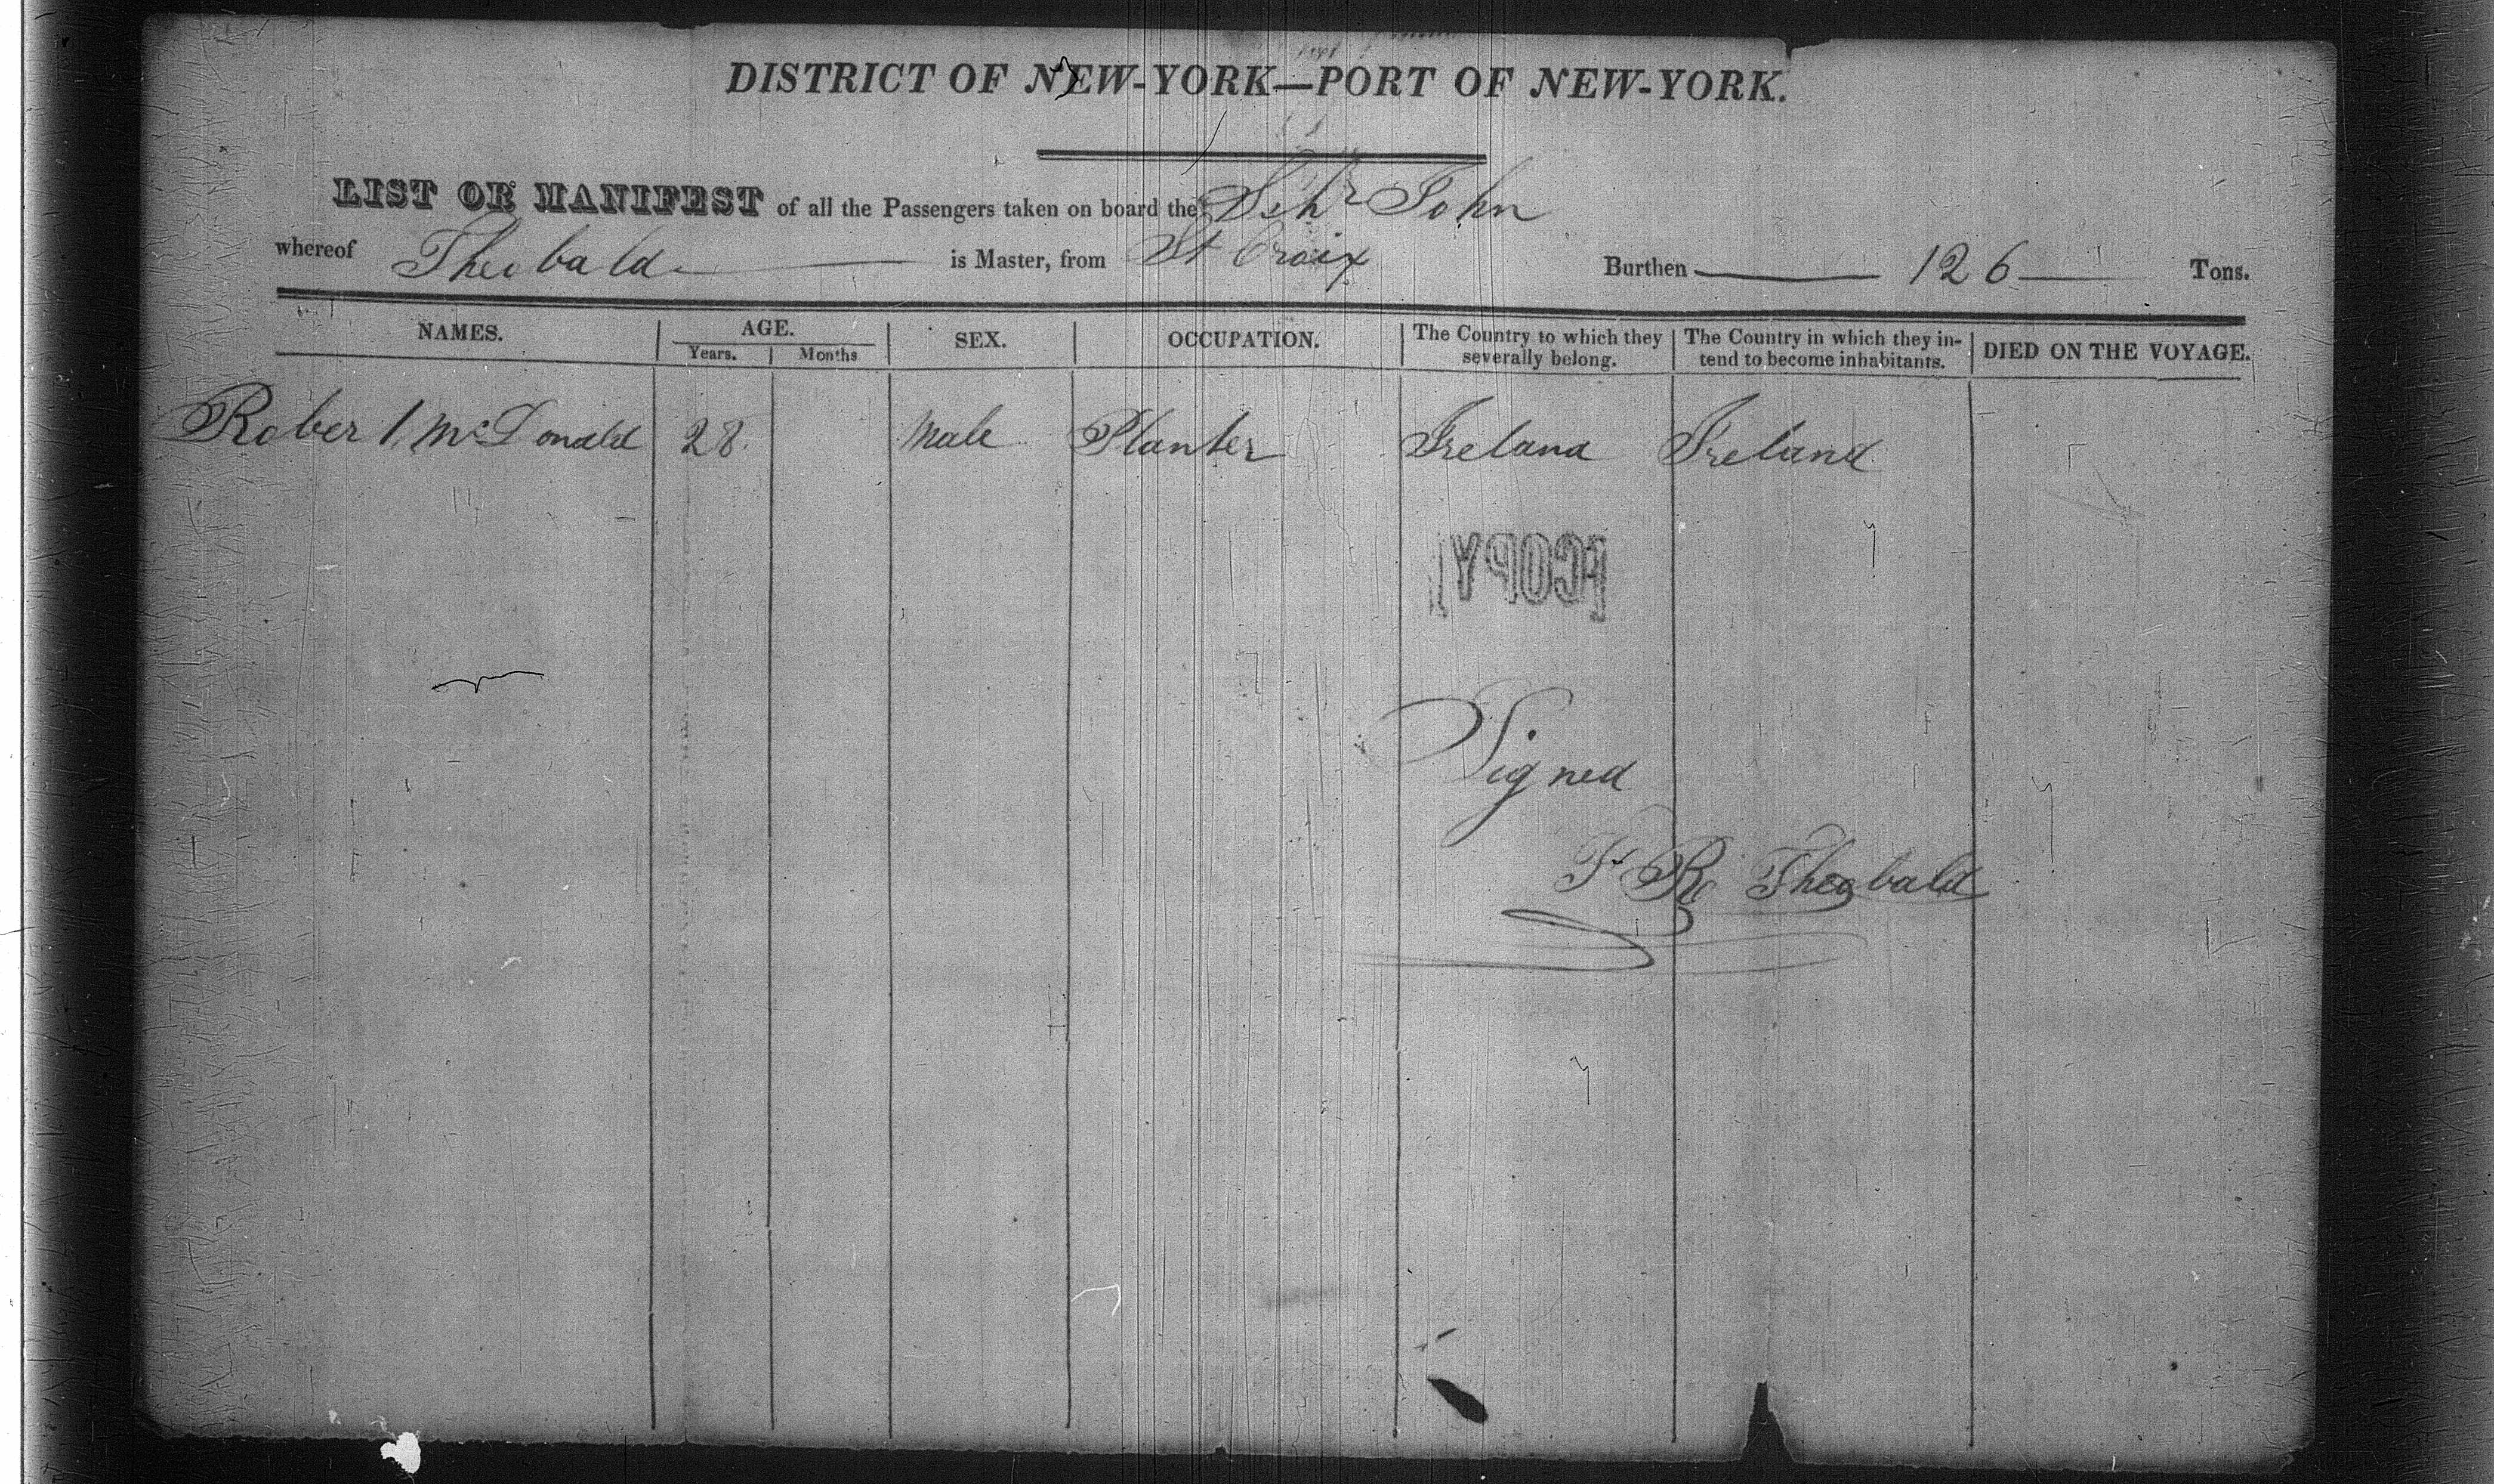 DISTRICT OF NEW-YORK—PORT OF NEW-YORK.
LIST OR MANIFEST of all the Passengers taken on board the Schr John
whereof Theobald is Master, from St Croix Burthen 126 Tons.
NAMES. AGE. SEX. OCCUPATION. The Country to which they severally belong. The Country in which they intend to become inhabitants. DIED ON THE VOYAGE.
Years. Months
Robert McDonald 28 Male Planter Ireland Ireland
[COPY]
Signed
Theobald